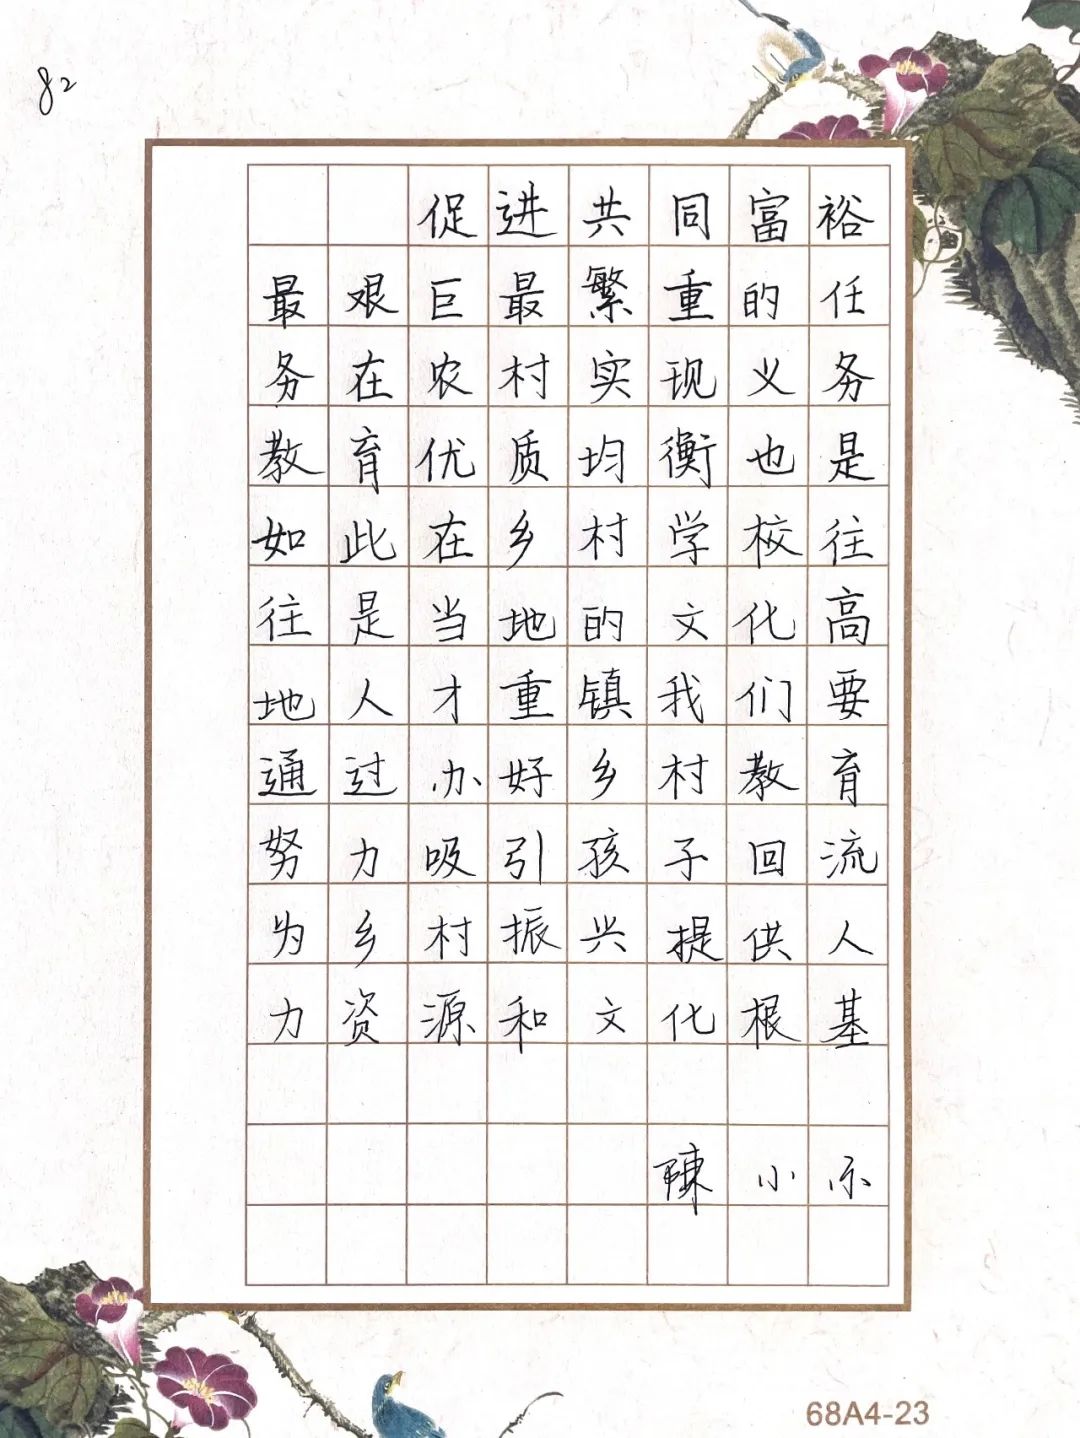 82
促进共同富裕
最艰巨最繁重的任
务在农村实现义务
教育优质均衡也是
如此在乡村学校往
往是当地的文化高
地人才重镇我们要
通过办好乡村教育
努力吸引孩子回流
为乡村振兴提供人
力资源和文化根基
陳小示
68A4-23